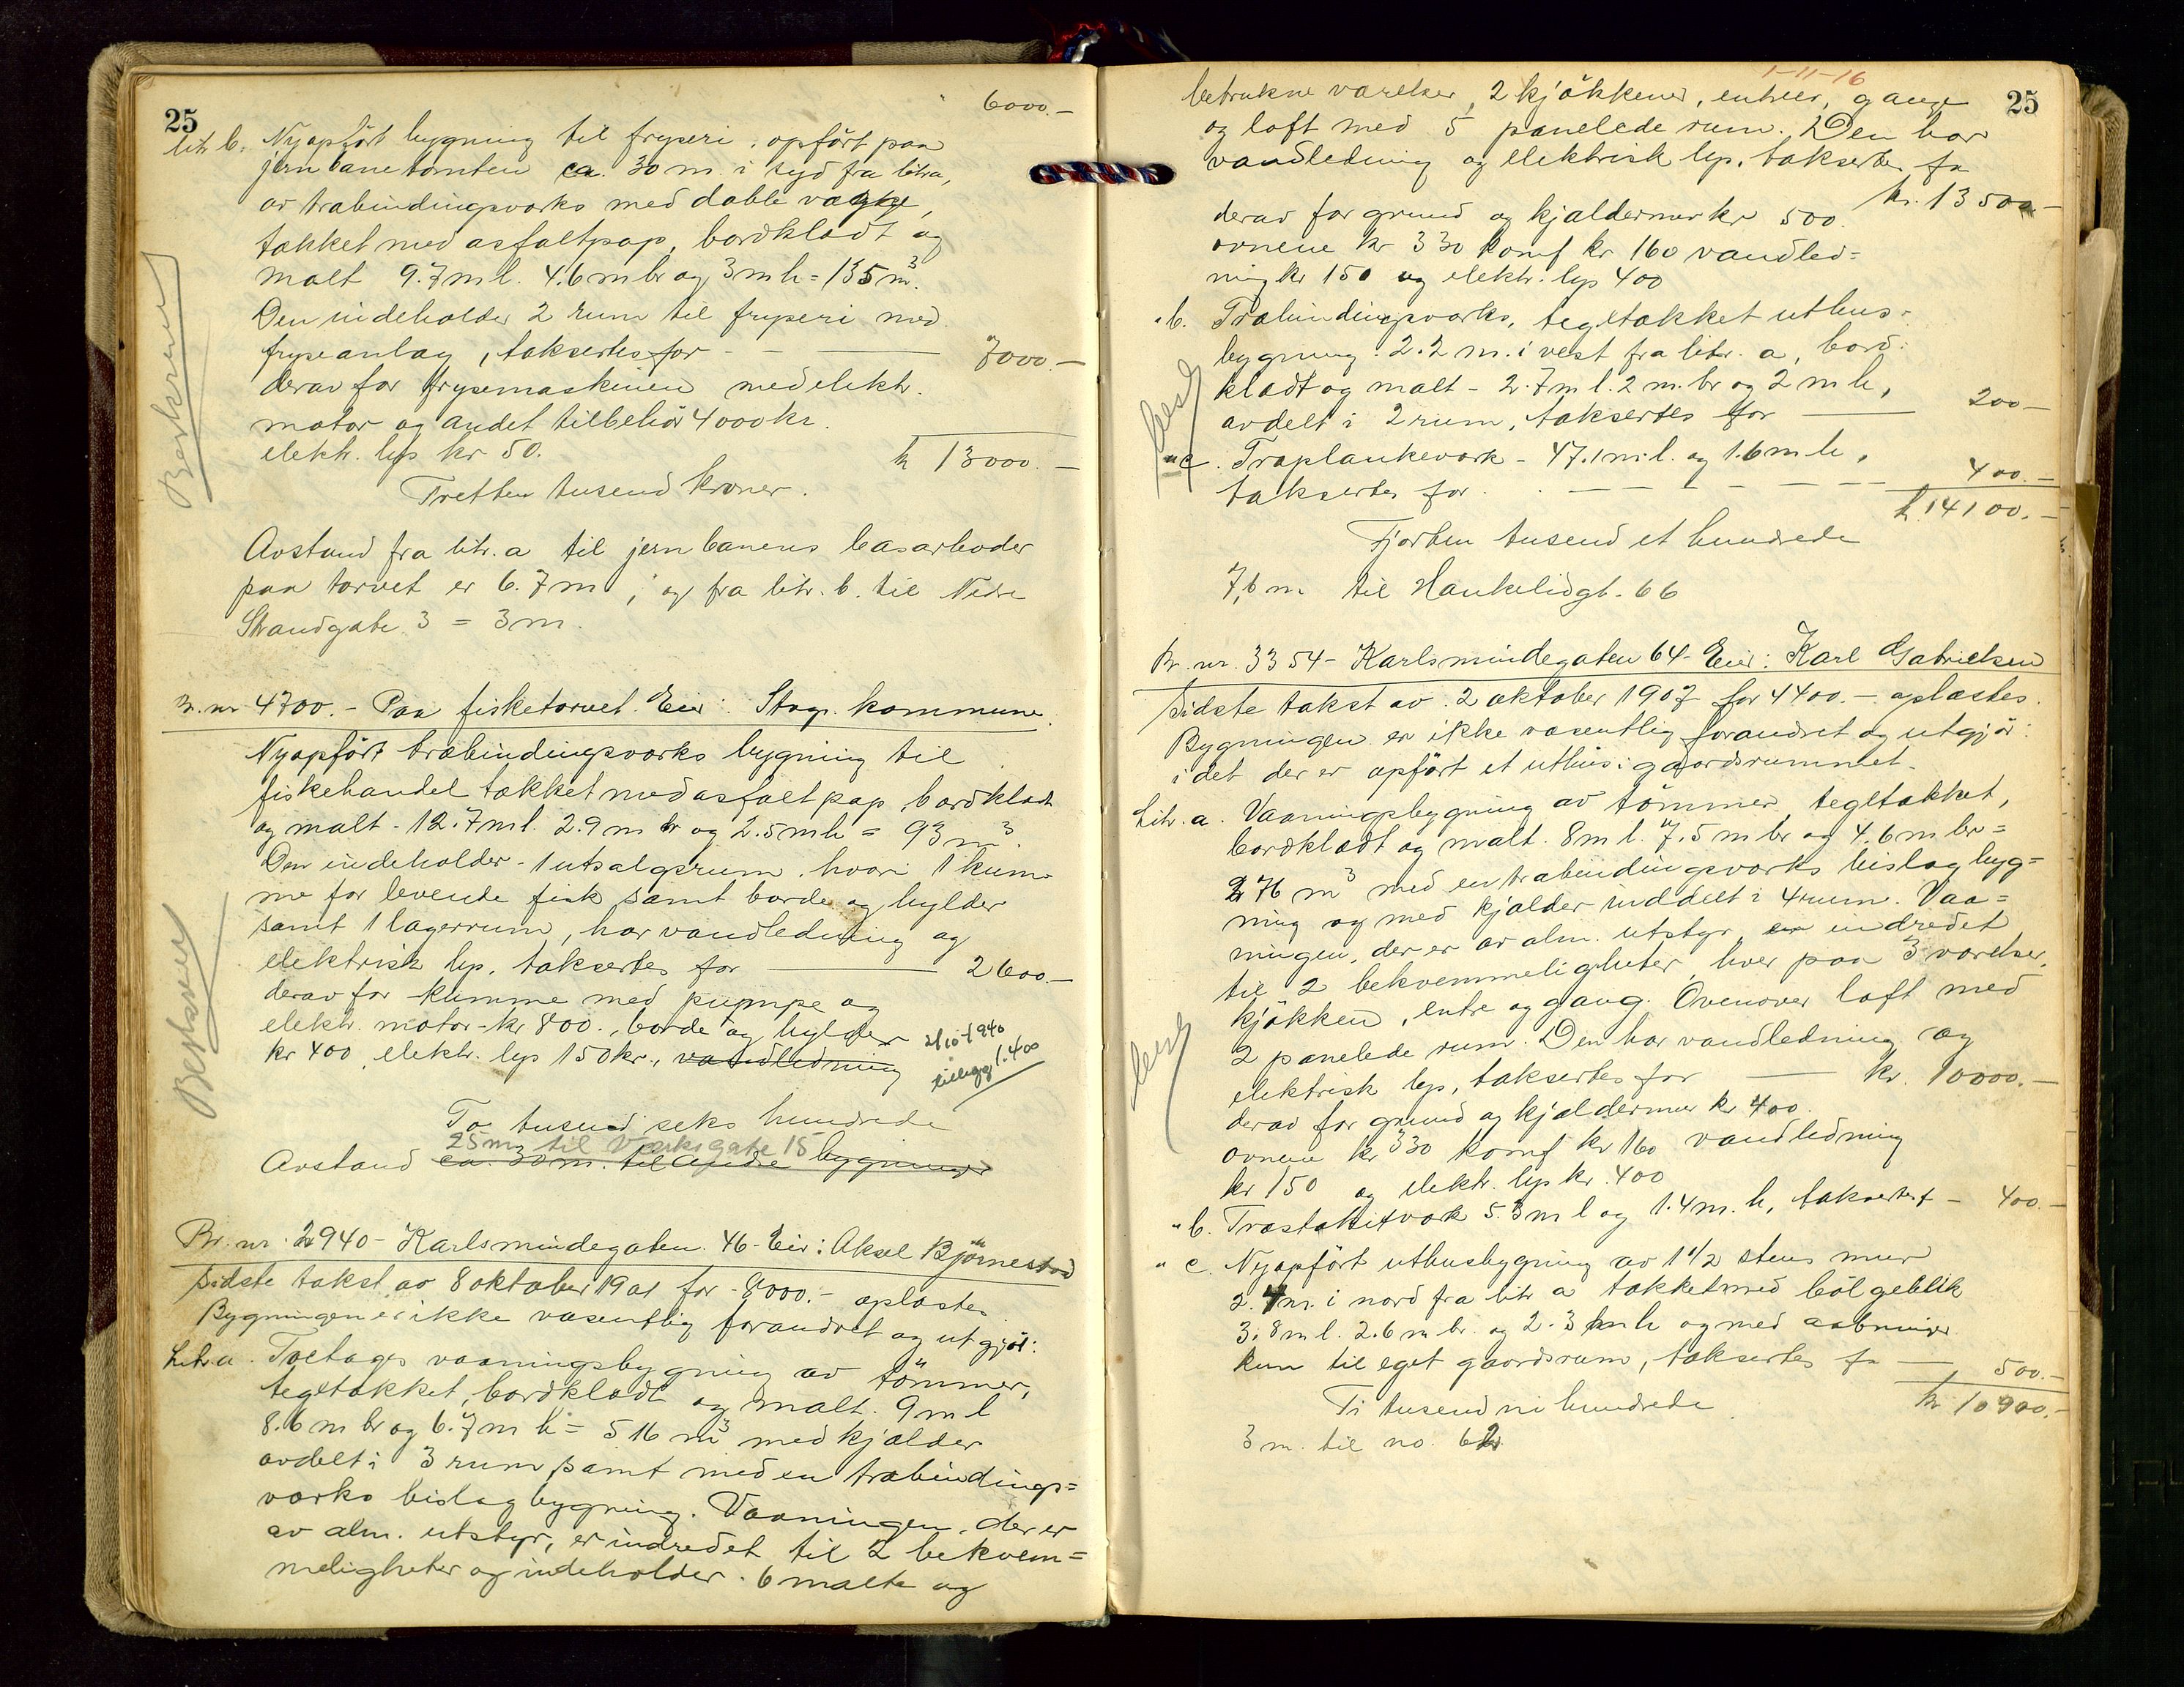 25
6000.-
litr. b. Nyopført bygning til fryseri, opført paa
jernbanetomten ca. 30 m. i syd fra litra,
av træbindingsværks med doble vægge,
tækket med asfaltpap, bordklædt og
malt 9.7 m l. 4.6 m br og 3 m h = 135 m³.
Den indeholder 2 rum til fryseri med
fryseanlæg, taksertes for - - 7000.-
derav for frysemaskinen med elektr.
motor og andet tilbehör 4000 kr.
elektr. lys kr 50.
kr 13000.-
Tretten tusend kroner.
Avstand fra litr. a til jernbanens basarboder
paa torvet er 6.7 m, og fra litr. b. til Nedre
Strandgate 3 = 3 m.
Br. nr 4700.- Paa fisketorvet. Eier: Stvgr. kommune.
Nyopført træbindingsværks bygning til
fiskehandel tækket med asfaltpap bordklædt
og malt - 12.7 m l. 2.9 m br og 2.5 m h = 93 m³.
Den indeholder - 1 utsalgsrum, hvori 1 kum-
me for levende fisk samt borde og hylder
samt 1 lagerrum, har vandledning og
elektrisk lys, taksertes for 2600.-
derav for kumme med pumpe og
elektr. motor - kr 800., borde og hylder
kr 400, elektr. lys 150 kr., vandledning
2/10-1940
tillegg 1.400
To tusend seks hundrede
25 m til Verksgate 15
Avstand ca. 30 m. til andre bygninger
Br. nr. 2940 - Karlsmindegaten 46 - Eier: Aksel Björnestad
Sidste takst av 8 oktober 1901 for 8000.- oplæstes
Bygningen er ikke væsentlig forandret og utgjör:
Litr. a. Toetages vaaningsbygning av tömmer,
tegltækket, bordklædt og malt. 9 m l
8.6 m br og 6.7 m h = 516 m³ med kjælder
avdelt i 3 rum samt med en træbindings=
værks bislagbygning. Vaaningen, der er
av alm. utstyr, er indredet til 2 bekvem=
meligheter og indeholder. 6 malte og
1-11-16
25
betrukne værelser, 2 kjökkener, entreer, gange
og loft med 5 panelede rum. Den har
vandledning og elektrisk lys, taksertes for
kr. 13500.-
derav for grund og kjældermur kr 500.
ovnene kr 330 komf kr 160 vandled=
ning kr 150 og elektr. lys 400
" b. Træbindingsværks, tegltækket uthus-
bygning. 2.2 m. i vest fra litr. a, bord-
klædt og malt - 2.7 m l. 2 m. br og 2 m h,
avdelt i 2 rum, taksertes for 200-
" c. Træplankeværk - 47.1 m. l. og 1.6 m h,
taksertes for 400.-
kr. 14100.-
Fjorten tusend et hundrede
7,6 m til Haukelidgt. 66
Br. nr. 3354 - Karlsmindegaten 64 - Eier: Karl Gabrielsen
Sidste takst av 2 oktober 1907 for 4400.- oplæstes.
Bygningen er ikke væsentlig forandret og utgjör:
idet der er opført et uthus i gaardsrummet.
Litr. a. Vaaningsbygning av tömmer, tegltækket,
bordklædt og malt. 8 m l. 7.5 m br og 4.6 m br =
276 m³ med en træbindingsværks bislagbyg=
ning og med kjælder inddelt i 4 rum. Vaa=
ningen, der er av alm. utstyr er indredet
til 2 bekvemmeligheter, hver paa 3 værelser,
kjökken, entre og gang. Ovenover loft med
2 panelede rum. Den har vandledning og
elektrisk lys, taksertes for kr. 10000.-
derav for grund og kjældermur kr 400.
ovnene kr 330 komf kr 160 vandledning
kr 150 og elektr. lys kr. 400
" b. Træstakitværk 5.3 m l og 1.4 m. h, taksertes f - 400.-
" c. Nyopført uthusbygning av 1 1/2 stens mur
2.4 m. i nord fra litr a tækket med bölgeblik
3.8 m l. 2.6 m br. og 2.3 m h og med aabninger
kun til eget gaardsrum, taksertes for 500.-
kr 10900.-
Ti tusend ni hundrede
3 m. til no. 62